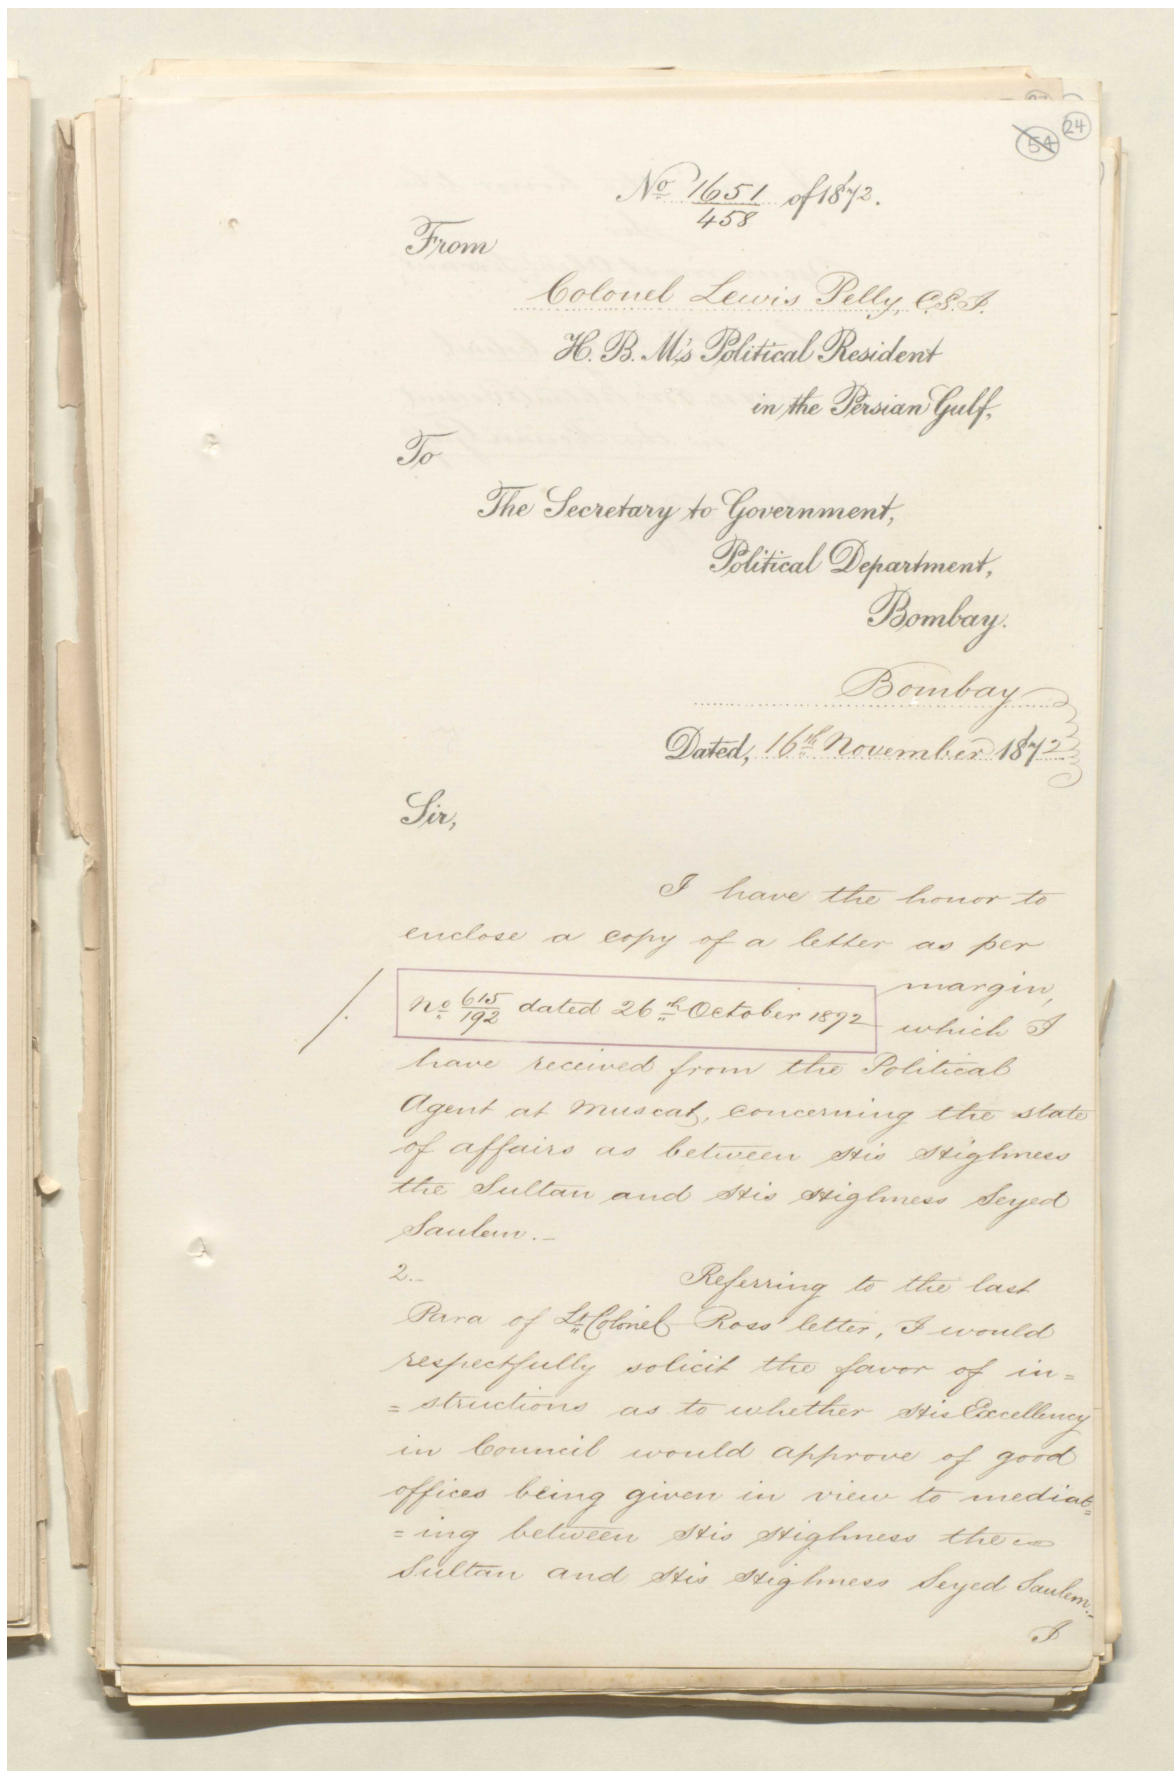 54
24
No 1651/458 of 1872.
From
Colonel Lewis Pelly, C.S.I.
H. B. M's Political Resident
in the Persian Gulf,
To
The Secretary to Government,
Political Department,
Bombay.
Bombay
Dated, 16th November 1872
Sir,
I have the honor to
enclose a copy of a letter as per
margin,
No 615/192 dated 26th October 1872
which I
have received from the Political
Agent at Muscat, concerning the state
of affairs as between His Highness
the Sultan and His Highness Seyed
Saulem.-
2.-
Referring to the last
Para of Lt Colonel Ross' letter, I would
respectfully solicit the favor of in=
=structions as to whether His Excellency
in Council would approve of good
offices being given in view to mediat=
=ing between His Highness the
Sultan and His Highness Seyed Saulem.-
I